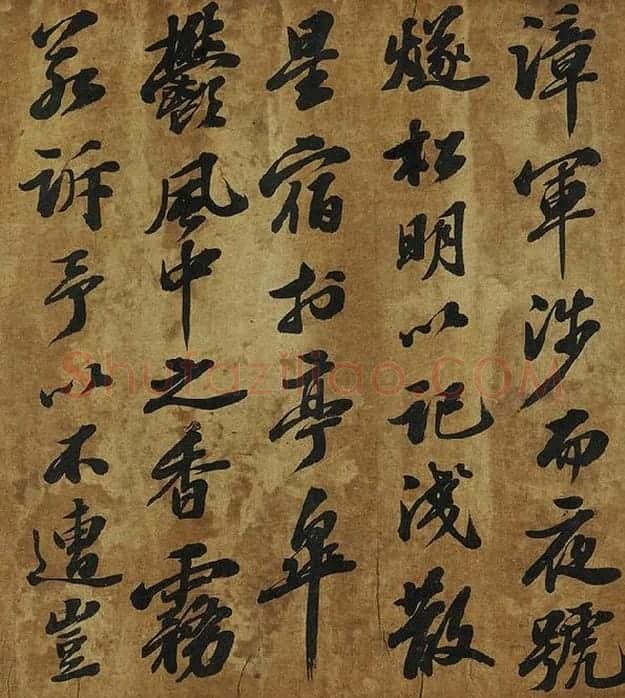 漳軍涉而夜號
燧松明以記淺散
星宿於亭皋
鬱風中之香霧
若訴予以不遭豈
Shufaziliao.COM